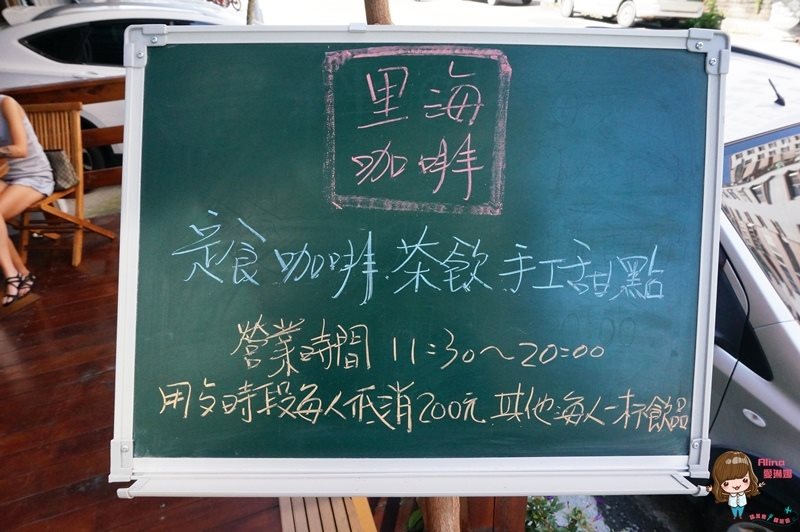 里海
咖啡
定食 咖啡.茶飲 手工甜點
營業時間 11:30~20:00
用夕時段每人低消200元 其他每人一杯飲品
Alina
愛琳娜